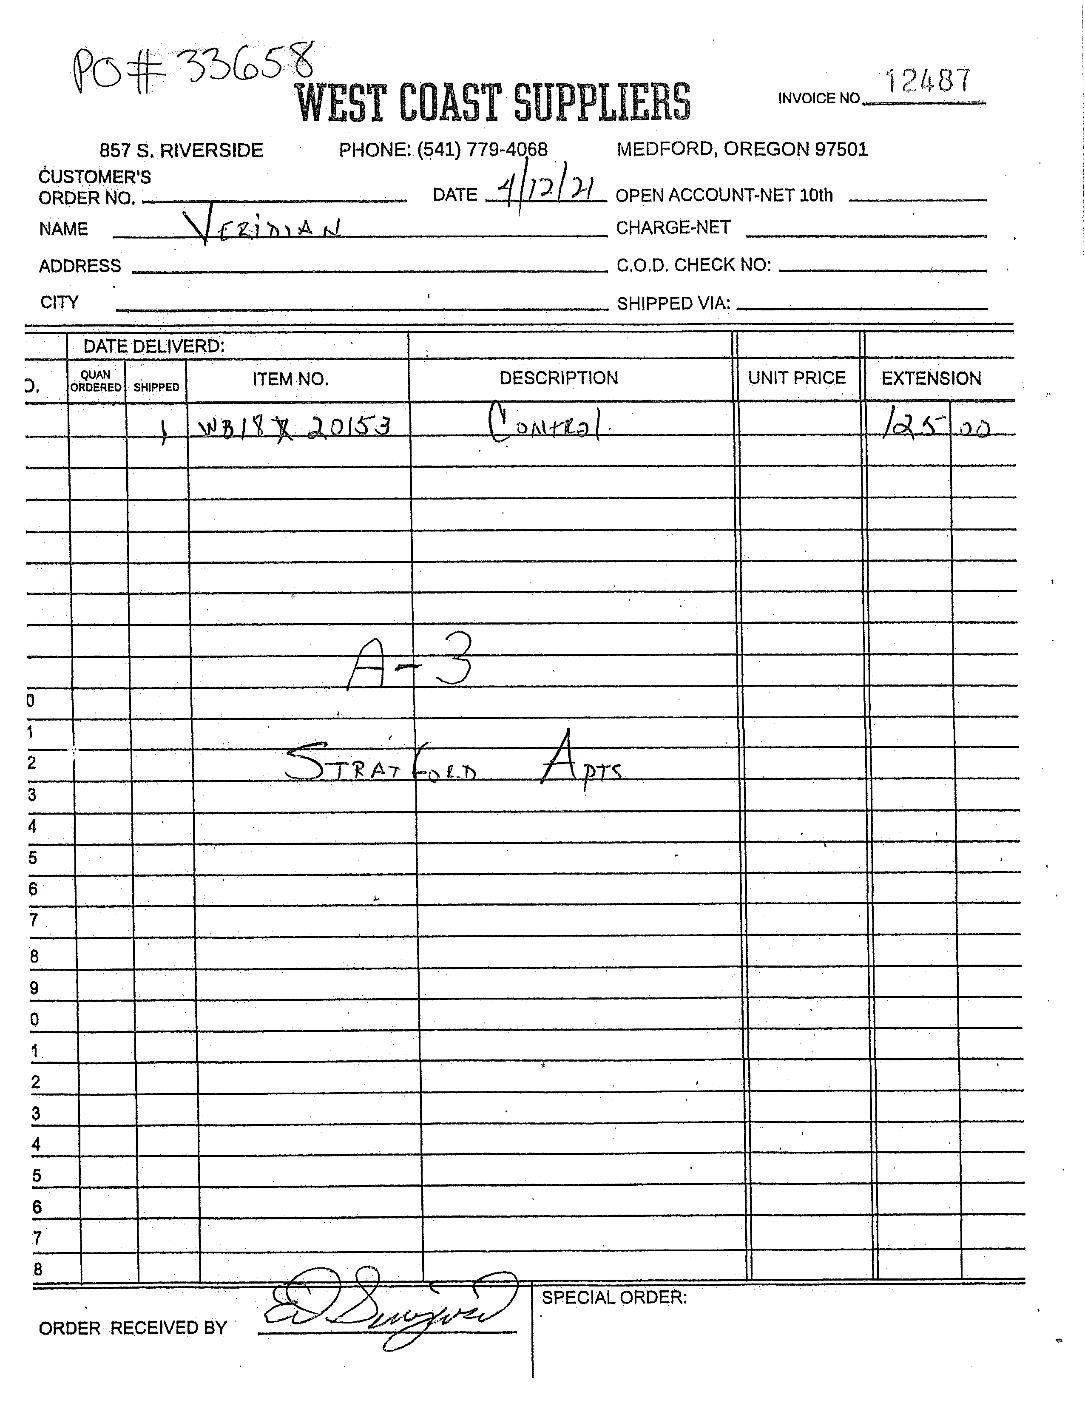 PO# 33658
WEST COAST SUPPLIERS
INVOICE NO. 12487
857 S. RIVERSIDE PHONE: (541) 779-4068 MEDFORD, OREGON 97501
CUSTOMER'S
ORDER NO. DATE 4/12/21 OPEN ACCOUNT-NET 10th
NAME VERIDIAN CHARGE-NET
ADDRESS C.O.D. CHECK NO:
CITY SHIPPED VIA:
DATE DELIVERD:
O. QUAN ORDERED SHIPPED ITEM NO. DESCRIPTION UNIT PRICE EXTENSION
1 WB18X 20153 CONTROL 125 00
A-3
0
1
STRATFORD APTS
2
3
4
5
6
7
8
9
0
1
2
3
4
5
6
7
8
SPECIAL ORDER:
ORDER RECEIVED BY